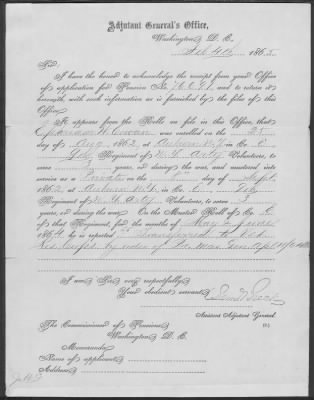 Adjutant General's Office,
Washington, D. C.
Feb 4th 1865
Sir:
I have the honor to acknowledge the receipt from your Office
of application for Pension No. and to return it
herewith, with such information as is furnished by the files of this
Office.
It appears from the Rolls on file in this Office, that
was enrolled on the 25
day of Aug 1862, at Auburn N.Y. in Co. C
Regiment of N.Y. Arty Volunteers, to
serve 3 years, or during the war, and mustered into
service as a Private on the day of Sept.
1862, at Auburn N.Y., in Co. C
Regiment of N.Y. Arty. Volunteers, to serve 3
years, or during the war. On the Muster Roll of Co. C
of that Regiment, for the months of May & June
186 , he is reported "Transferred to
Corps by order of War
I am Sir, very respectfully,
Your obedient servant,
Assistant Adjutant General.
The Commissioner of Pensions,
Washington, D. C.
Memoranda:
Name of applicant
Address